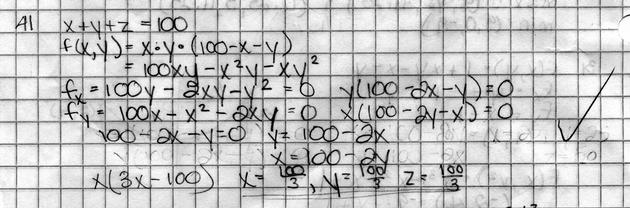 41 x+y+z=100
f(x,y) = x·y·(100-x-y)
= 100xy - x²y - xy²
fx = 100y - 2xy - y² = 0 y(100-2x-y)=0
fy = 100x - x² - 2xy = 0 x(100-2y-x)=0
100-2x-y=0 y=100-2x
x=100-2y
x(3x-100) x=100/3, y=100/3 z=100/3